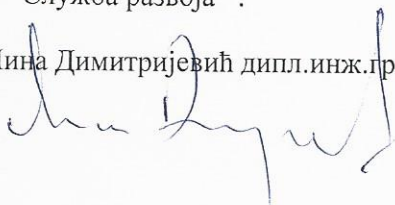 Служба развоја" :
Мина Димитријевић дипл.инж.гр